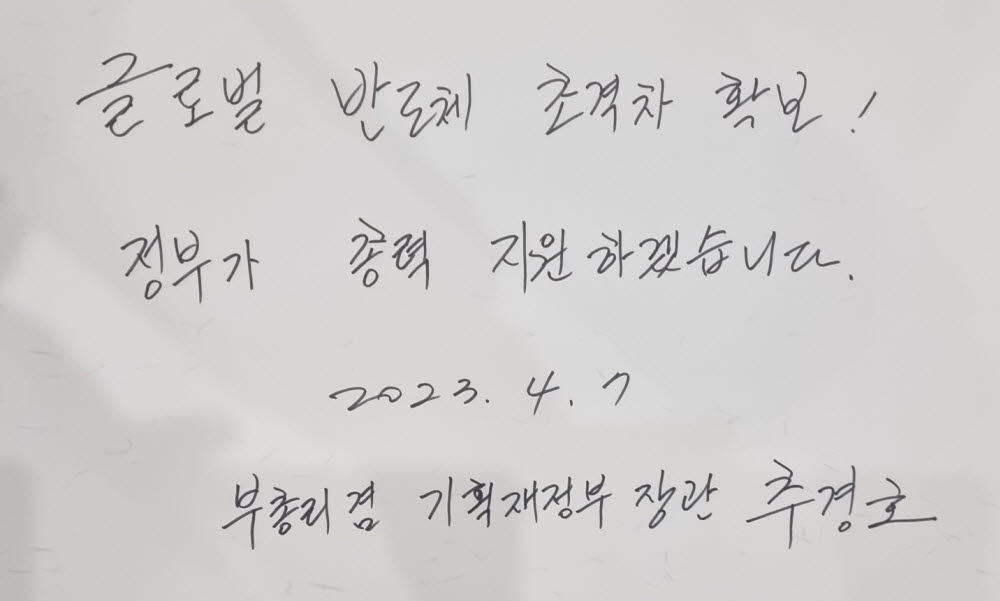 글로벌 반도체 초격차 확보!
정부가 총력 지원하겠습니다.
2023. 4. 7
부총리겸 기획재정부 장관 추경호